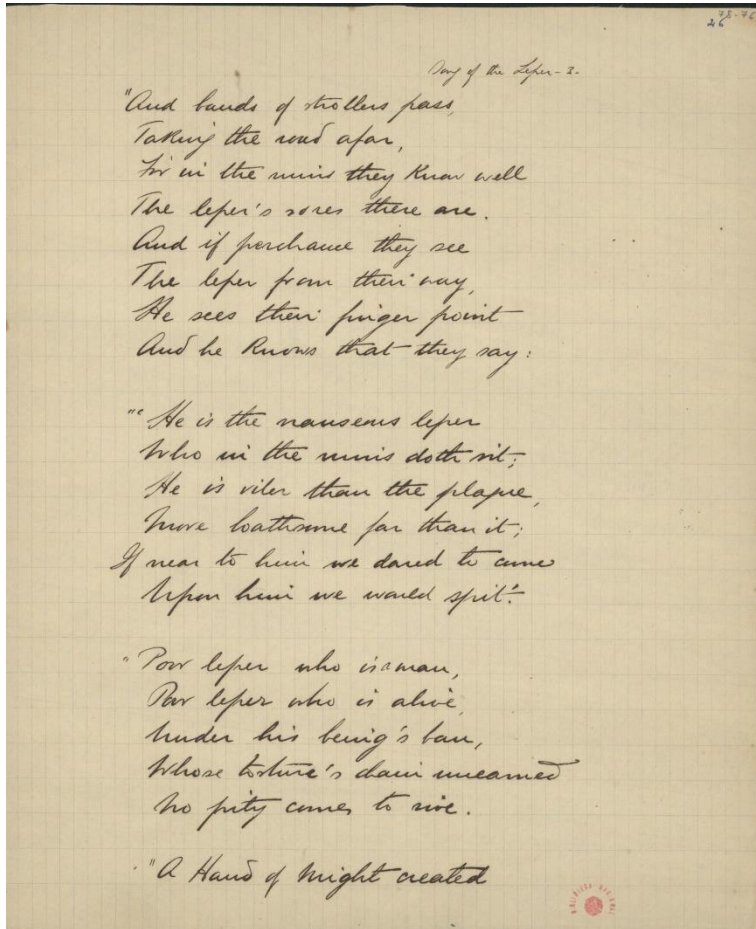 78-76
26
Song of the Leper - 3.
"And bands of strollers pass,
Taking the road afar,
For in the ruins they know well
The leper's sores there are.
And if perchance they see
The leper from their way,
He sees their finger point
And he knows that they say:
"'He is the nauseous leper
Who in the ruins doth sit;
He is viler than the plague,
More loathsome far than it;
If near to him we dared to come
Upon him we would spit.'
"Poor leper who is man,
Poor leper who is alive,
Under his being's ban,
Whose torture's chain unearned
No pity comes to rive.
"A Hand of Might created